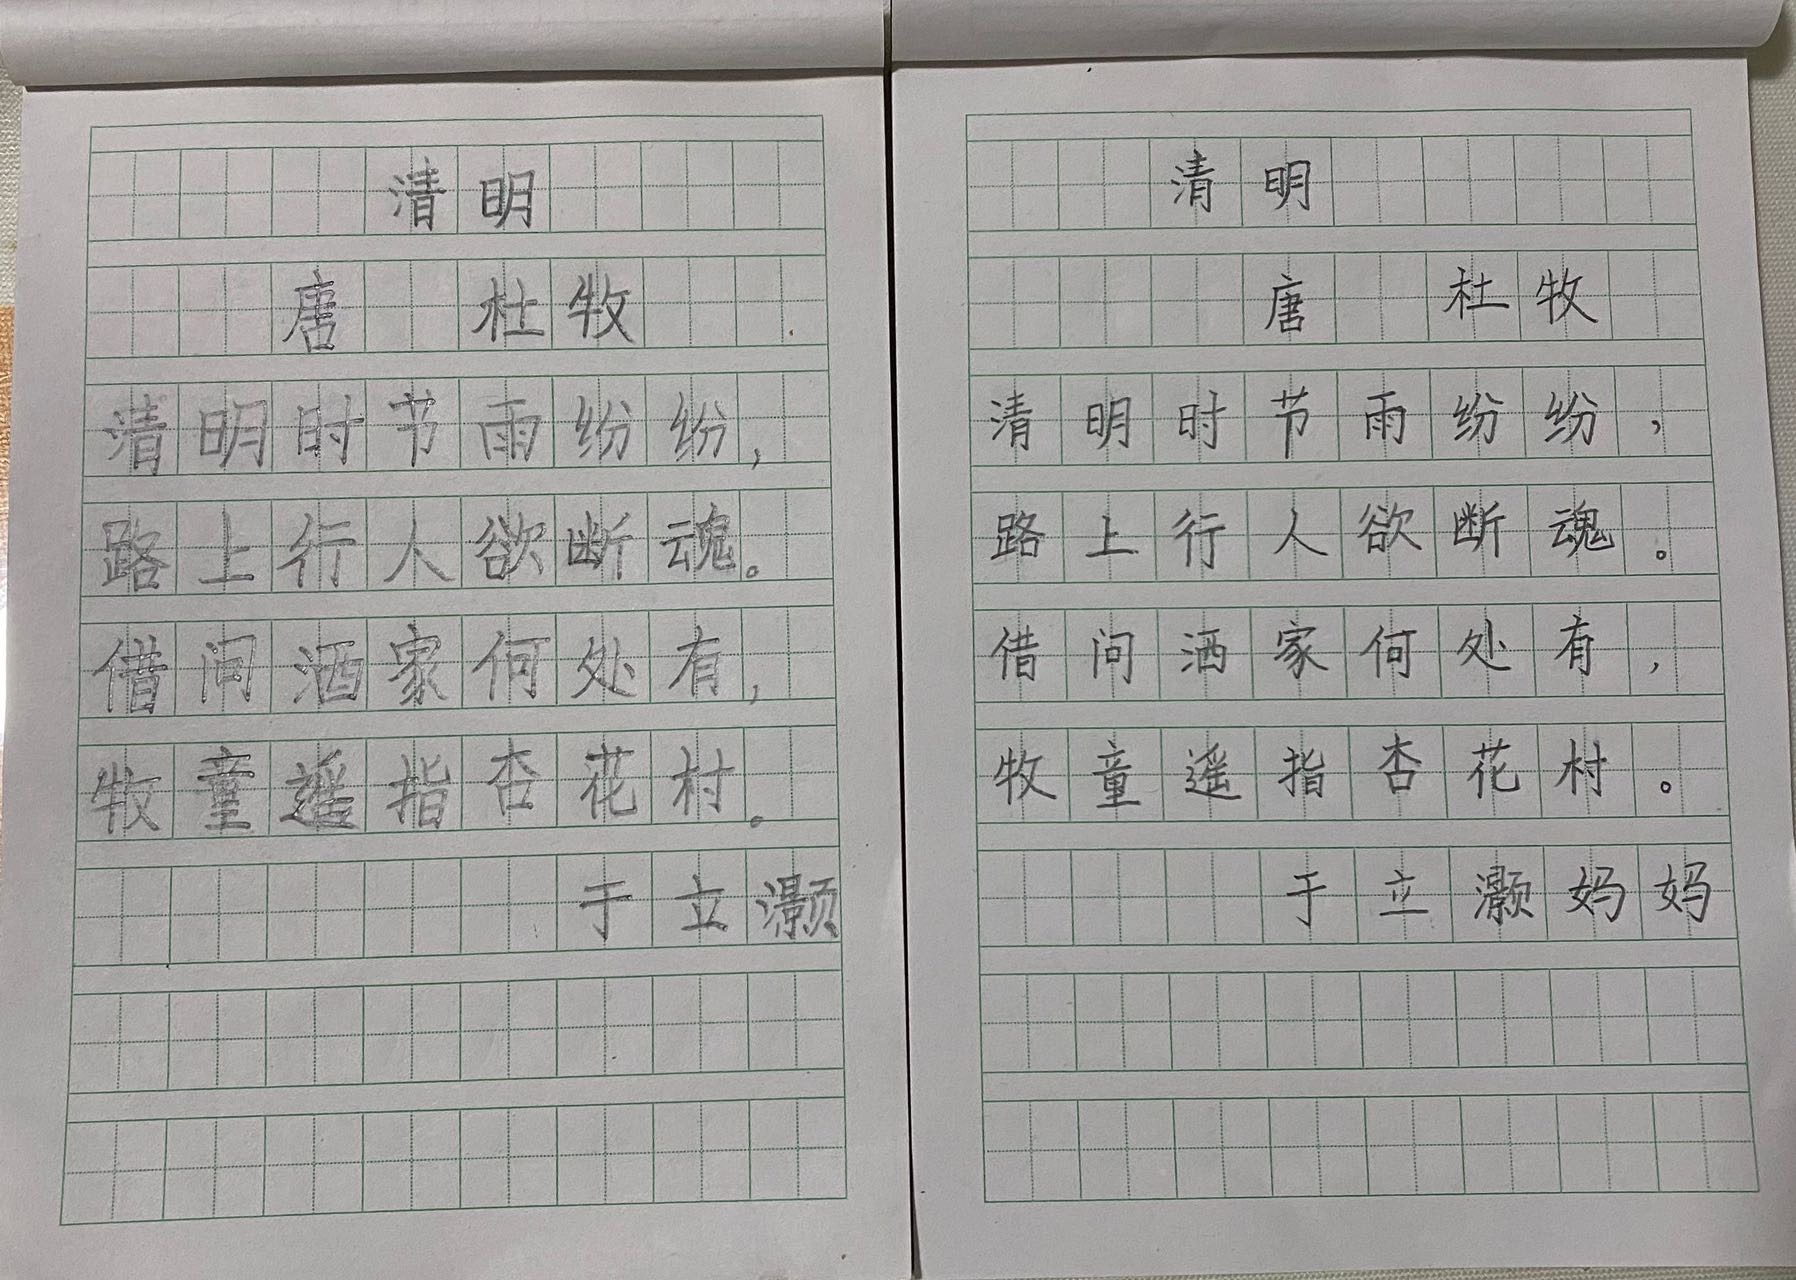 清明
唐 杜牧
清明时节雨纷纷，
路上行人欲断魂。
借问酒家何处有，
牧童遥指杏花村。
于立灏
清明
唐 杜牧
清明时节雨纷纷，
路上行人欲断魂。
借问酒家何处有，
牧童遥指杏花村。
于立灏妈妈